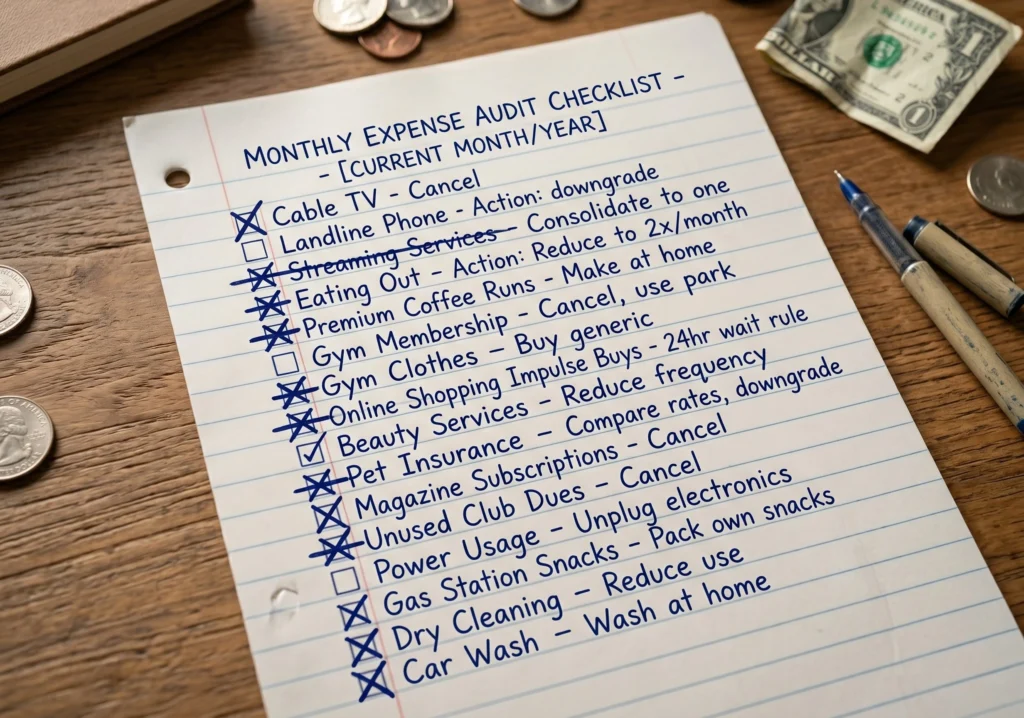 MONTHLY EXPENSE AUDIT CHECKLIST -
- [CURRENT MONTH/YEAR]
Cable TV - Cancel
Landline Phone - Action: downgrade
Streaming Services - Consolidate to one
Eating Out - Action: Reduce to 2x/month
Premium Coffee Runs - Make at home
Gym Membership - Cancel, use park
Gym Clothes - Buy generic
Online Shopping Impulse Buys - 24hr wait rule
Beauty Services - Reduce frequency
Pet Insurance - Compare rates, downgrade
Magazine Subscriptions - Cancel
Unused Club Dues - Cancel
Power Usage - Unplug electronics
Gas Station Snacks - Pack own snacks
Dry Cleaning - Reduce use
Car Wash - Wash at home
1
1